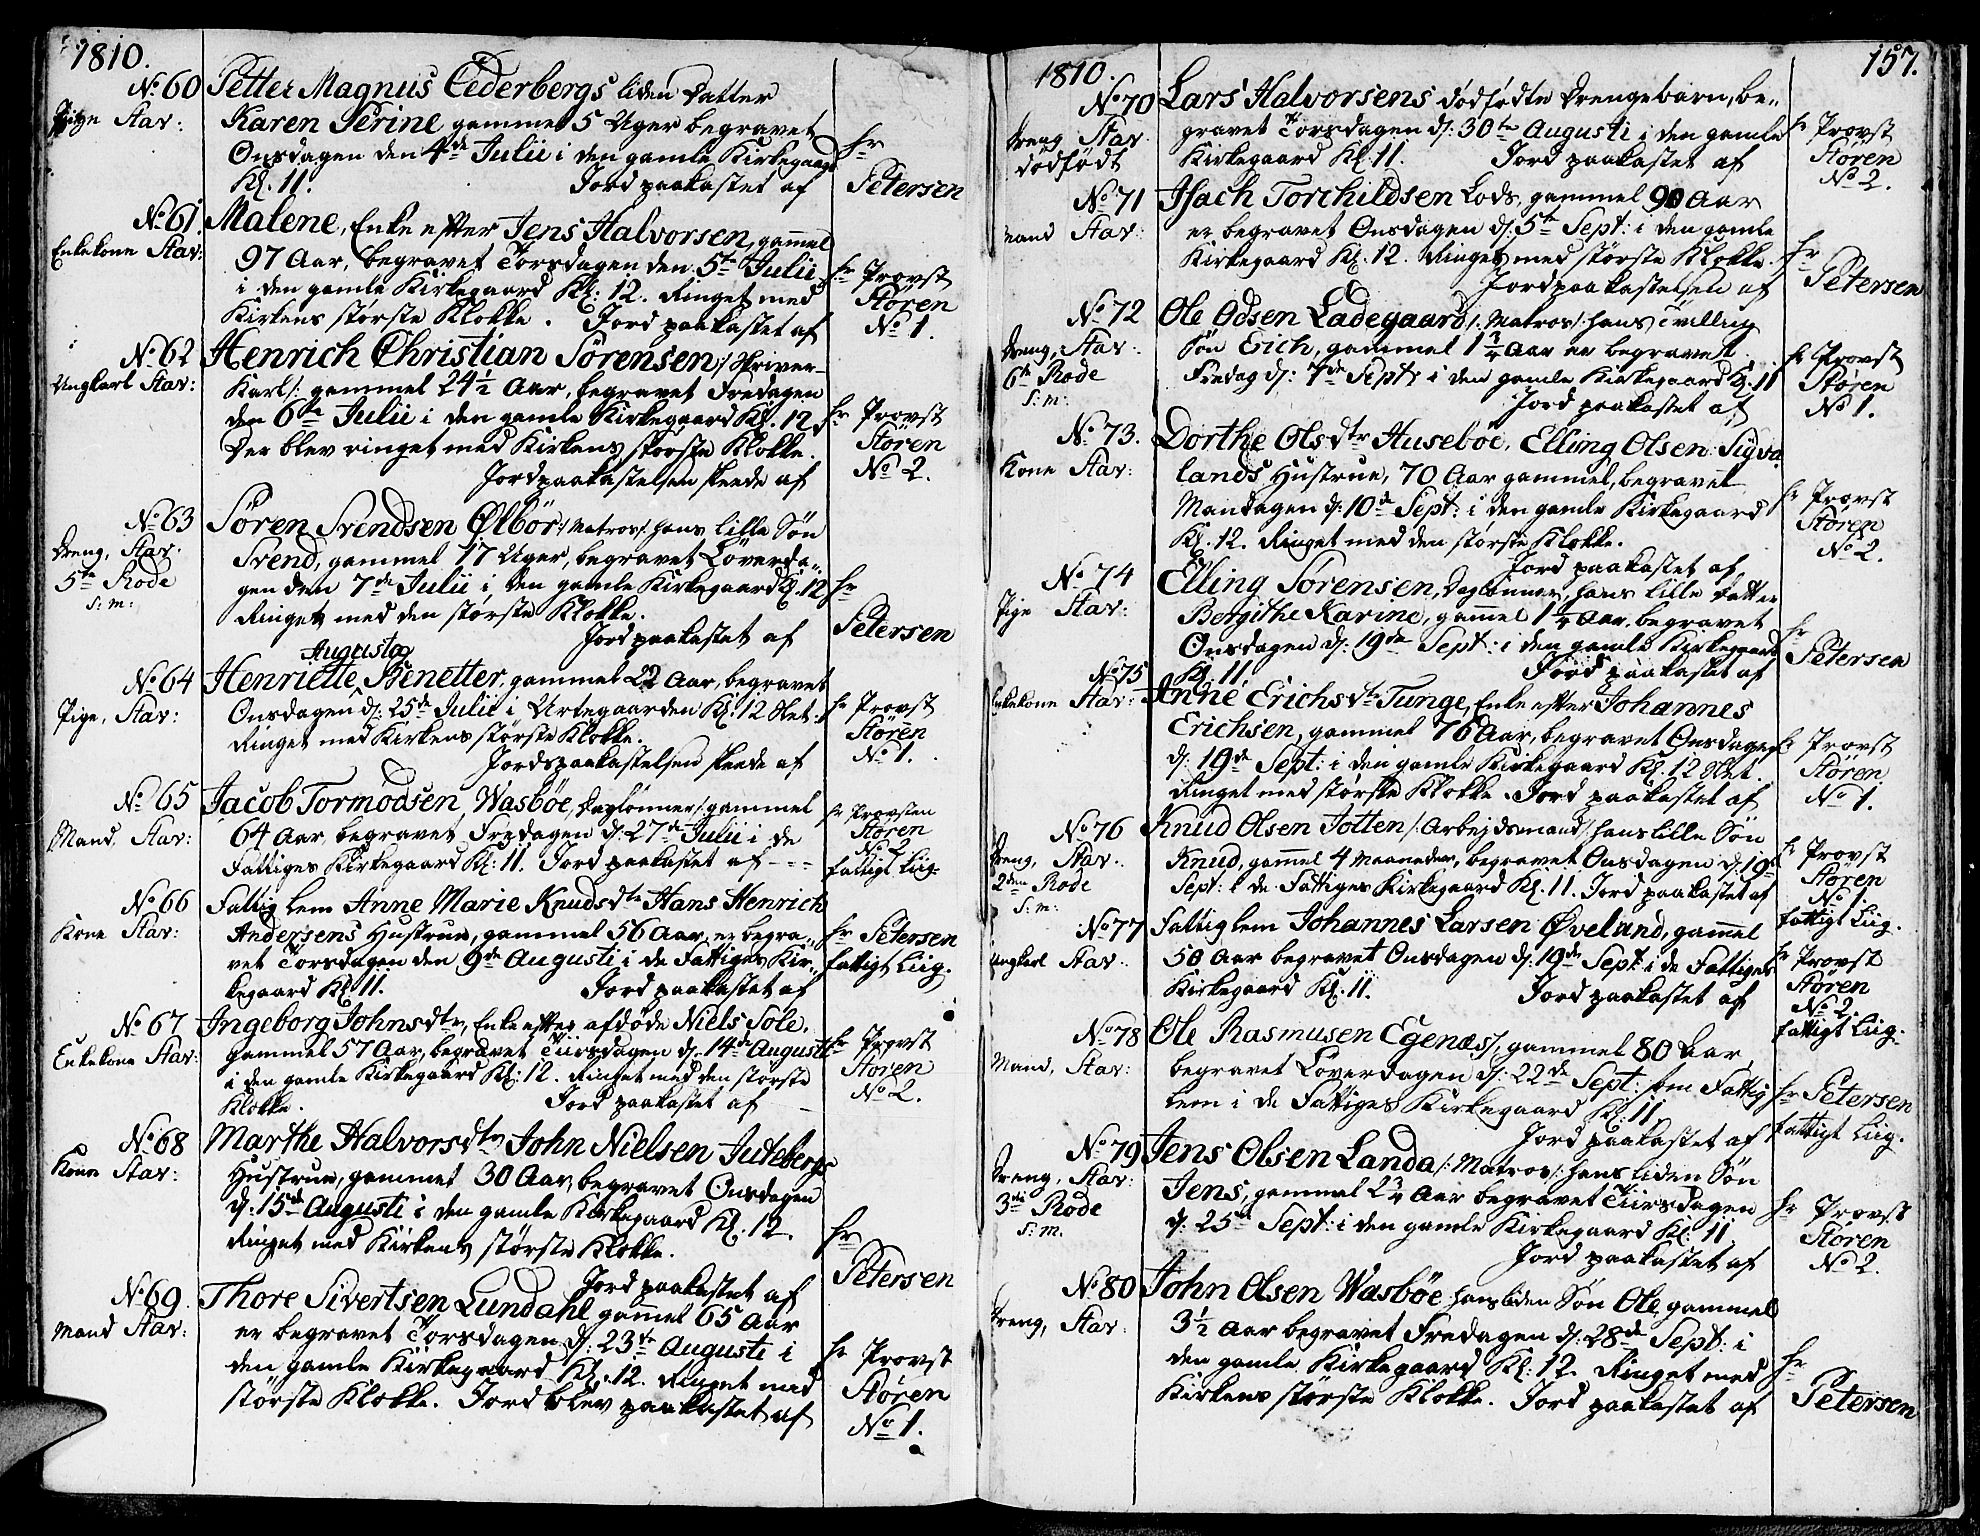 1810.
No 60 Petter Magnus Cederbergs liden Datter
Pige Stav: Karen Perine gammel 5 Uger begravet
Onsdagen den 4de Julii i den gamle Kirkegaard hr
Kl. 11. Jord paakastet af Petersen
No 61. Malene, Enke efter Jens Halvorsen, gam̄el
Enkekone Stav: 97 Aar, begravet Torsdagen den 5te Julii hr Provst
i den gamle Kirkegaard Kl: 12. Ringet med Stören
Kirkens störste Klokke. Jord paakastet af No 1.
No 62 Henrich Christian Sörensen /: Skriver-
Ungkarl Stav: Karl /: gammel 24½ Aar, begravet Fredagen
den 6te Julii i den gamle Kirkegaard Kl. 12 hr Provst
Der blev ringet med Kirkens störste Klokke. Stören
Jordpaakastelsen skeede af No 2.
No 63 Sören Svendsen Ölbör /: Matros /: hans lille Sön
Dreng, Stav. Svend, gammel 17 Uger, begravet Löverda-
5te Rode gen den 7de Julii i den gamle Kirkegaard Kl. 12 hr
S: m: Ringet med den störste Klokke.
Jord paakastet af Petersen
Augusta
No 64 Henriette Benetter, gammel 22 Aar, begravet
Pige, Stav: Onsdagen d: 25de Julii i Urtegaarden Kl: 12 Slet. hr Provst
Ringet med Kirkens störste Klokke. Stören
Jordspaakastelsen skeede af No 1.
No 65 Jacob Tormodsen, Wasböe, Daglönner /: gammel hr Provsten
Mand, Stav: 64 Aar, begravet Fredagen d: 27de Julii i de Stören
Fattiges Kirkegaard Kl: 11. Jord paakastet af --- No 2
fattigt Liig.
No 66 Fattig lem Anne Marie Knudsdtr Hans Henrich
Kone Stav: Andersens Hustrue, gammel 56 Aar, er begra- hr Petersen
vet Torsdagen den 9de Augusti i de Fattiges Kir- fattigt Liig.
kegaard Kl 11. Jord paakastet af
No 67 Ingeborg Johnsdtr, Enke efter afdöde Niels Sole,
Enkekone Stav: gammel 57 Aar, begravet Tiirsdagen d. 14de Augusti hr Provst
i den gamle Kirkegaard Kl: 12. Ringet med den störste Stören
Klokke. Jord paakastet af No 2.
No 68 Marthe Halvorsdtr John Nielsen Jutebergs
Kone Stav: Hustrue, gammel 30 Aar, begravet Onsdagen
d: 15de Augusti i den gamle Kirkegaard Kl. 12. hr
Ringet med Kirkens störste Klokke.
Jord paakastet af Petersen
No 69 Thore Sivertsen Lundahl gam̄el 65 Aar
Mand Stav: er begravet Torsdagen d: 23de Augusti i
den gamle Kirkegaard Kl. 12. Ringet med hr Provst
störste Klokke. Jord blev paakastet af Stören
No 1.
157.
1810.
No 70 Lars Halvorsens dödfödte Drengebarn, be-
Dreng Stav. gravet Torsdagen d: 30te Augusti i den gamle hr Provst
dödfödt Kirkegaard Kl. 11. Jord paakastet af Stören
No 2.
No 71 Isach Torchildsen Lods, gammel 90 Aar
Mand Stav: er begravet Onsdagen d: 5te Sept: i den gamle
Kirkegaard Kl: 12. Ringet med störste Klokke. hr
Jordpaakastelsen af Petersen
No 72 Ole Odsen Ladegaard /: Matros /: hans Tvilling
Dreng, Stav. Sön Erich, gammel 1¾ Aar er begravet hr Provst
6te Rode Fredag d: 7de Sept: i den gamle Kirkegaard Kl. 11 Stören
S: m: Jord paakastet af No 1.
No 73. Dorthe Olsdtr Huseböe, Elling Olsen Sigva-
Kone Stav: lands Hustrue, 70 Aar gammel, begravet
Mandagen d: 10de Sept: i den gamle Kirkegaard hr Provst
Kl. 12. Ringet med den störste Klokke. Stören
Jord paakastet af No 2.
No 74 Elling Sörensen, Daglönner, hans lille Datter
Pige Stav: Bergithe Karine, gam̄el 1¼ Aar, begravet
Onsdagen d: 19de Sept: i den gamle Kirkegaard hr
Kl. 11. Jord paakastet af Petersen
No 75 Anne Erichsdtr Tunge, Enke efter Johannes
Enkekone Stav: Erichsen, gammel 76 Aar, begravet Onsdagen hr Provst
d: 19de Sept: i den gamle Kirkegaard Kl. 12 Slet. Stören
Ringet med störste Klokke. Jord paakastet af No 1.
No 76 Knud Olsen Jotten /: Arbejdsmand /: hans lille Sön
Dreng, Stav. Knud, gam̄el 4 Maaneder, begravet Onsdagen d: 19de hr Provst
2den Rode Sept: i de Fattiges Kirkegaard Kl. 11. Jord paakastet af Stören
S: m: No 1
No 77 Fattiglem Johannes Larsen Öveland, gam̄el fattigt Liig.
Ungkarl Stav. 50 Aar begravet Onsdagen d: 19de Sept i de Fattiges hr Provst
Kirkegaard Kl. 11. Jord paakastet af Stören
No 2.
No 78 Ole Rasmusen Egenæs /, gammel 80 Aar fattigt Liig.
Mand, Stav: begravet Löverdagen d: 22de Sept: som Fattig
lem i de Fattiges Kirkegaard Kl. 11 hr Petersen
Jord paakastet af fattigt Liig.
No 79 Jens Olsen Landa /: Matros /: hans liden Sön
Dreng, Stav: Jens, gammel 2¾ Aar begravet Tiirsdagen
3die Rode d: 25de Sept: i den gamle Kirkegaard Kl: 11 hr Provst
S: m. Jord paakastet af Stören
No 2.
No 80 John Olsen Wasböe hans liden Sön Ole gammel
Dreng, Stav. 3½ Aar begravet Fredagen d: 28de Sept: i
den gamle Kirkegaard Kl: 12. Ringet med hr
Kirkens störste Klokke. Jord paakastet af Petersen